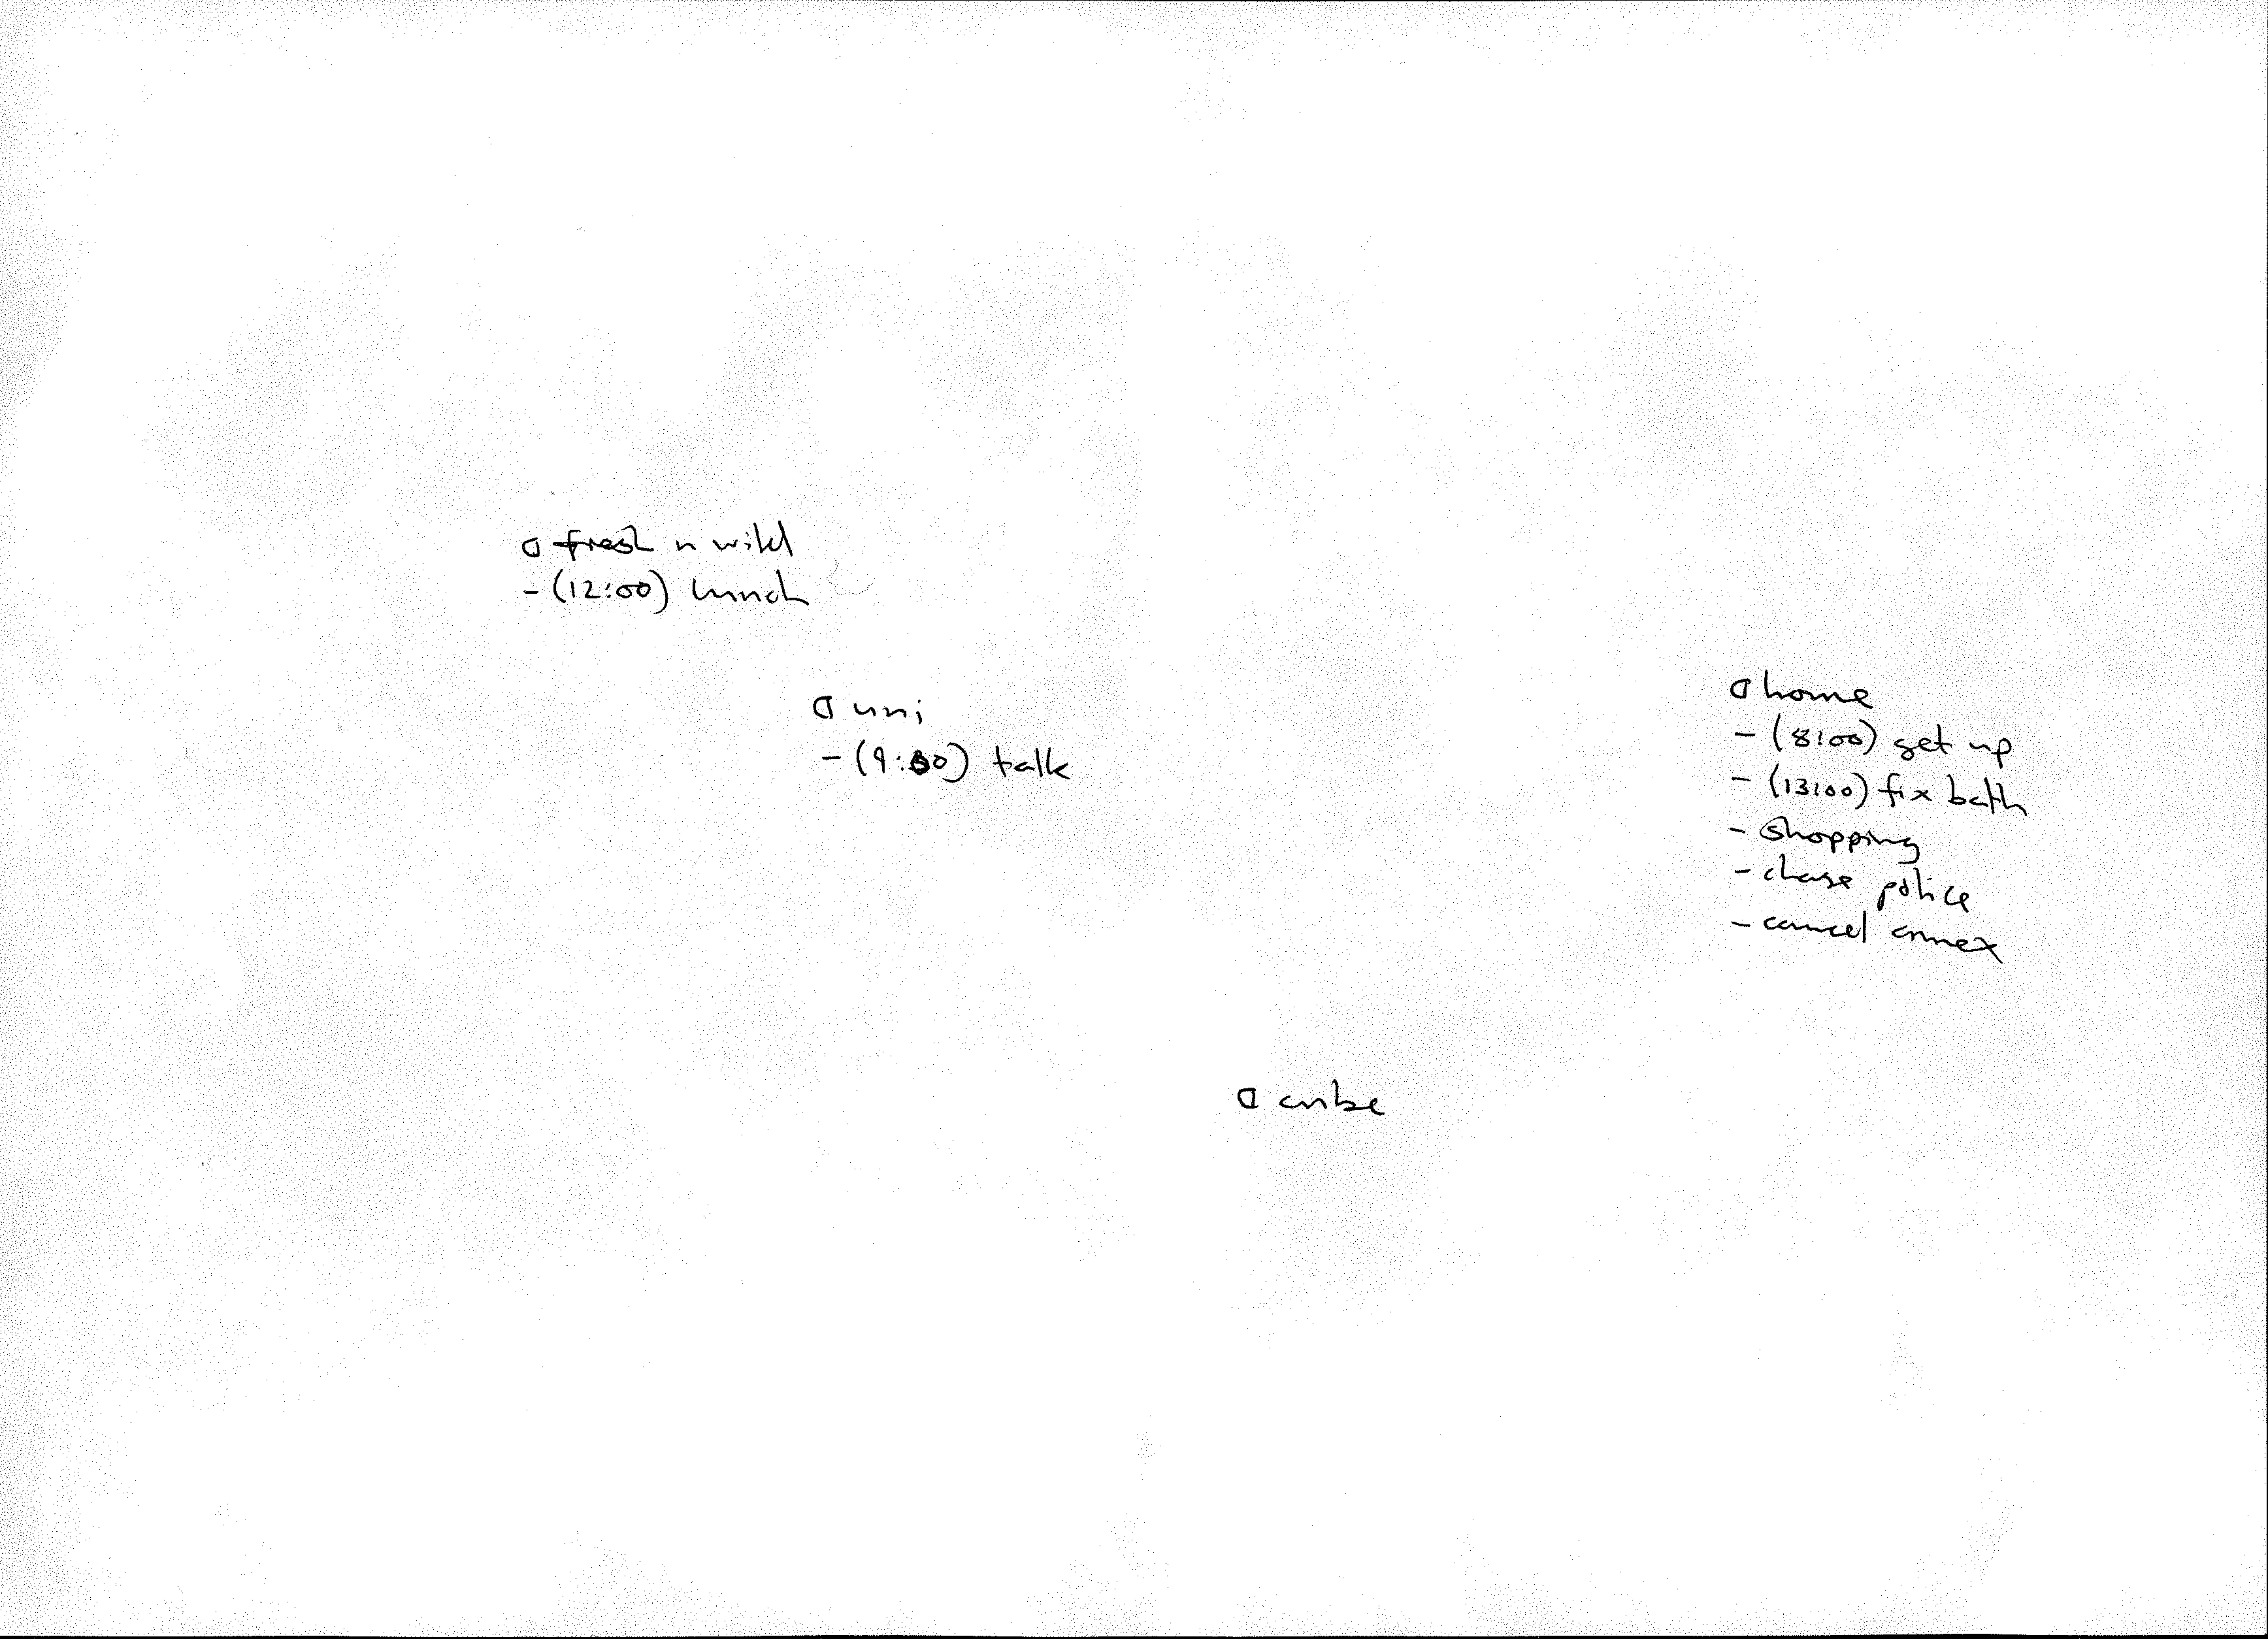 fresh n wild
- (12:00) lunch
uni
- (9:00) talk
home
- (8:00) get up
- (13:00) fix bath
- shopping
- chase police
- cancel annex